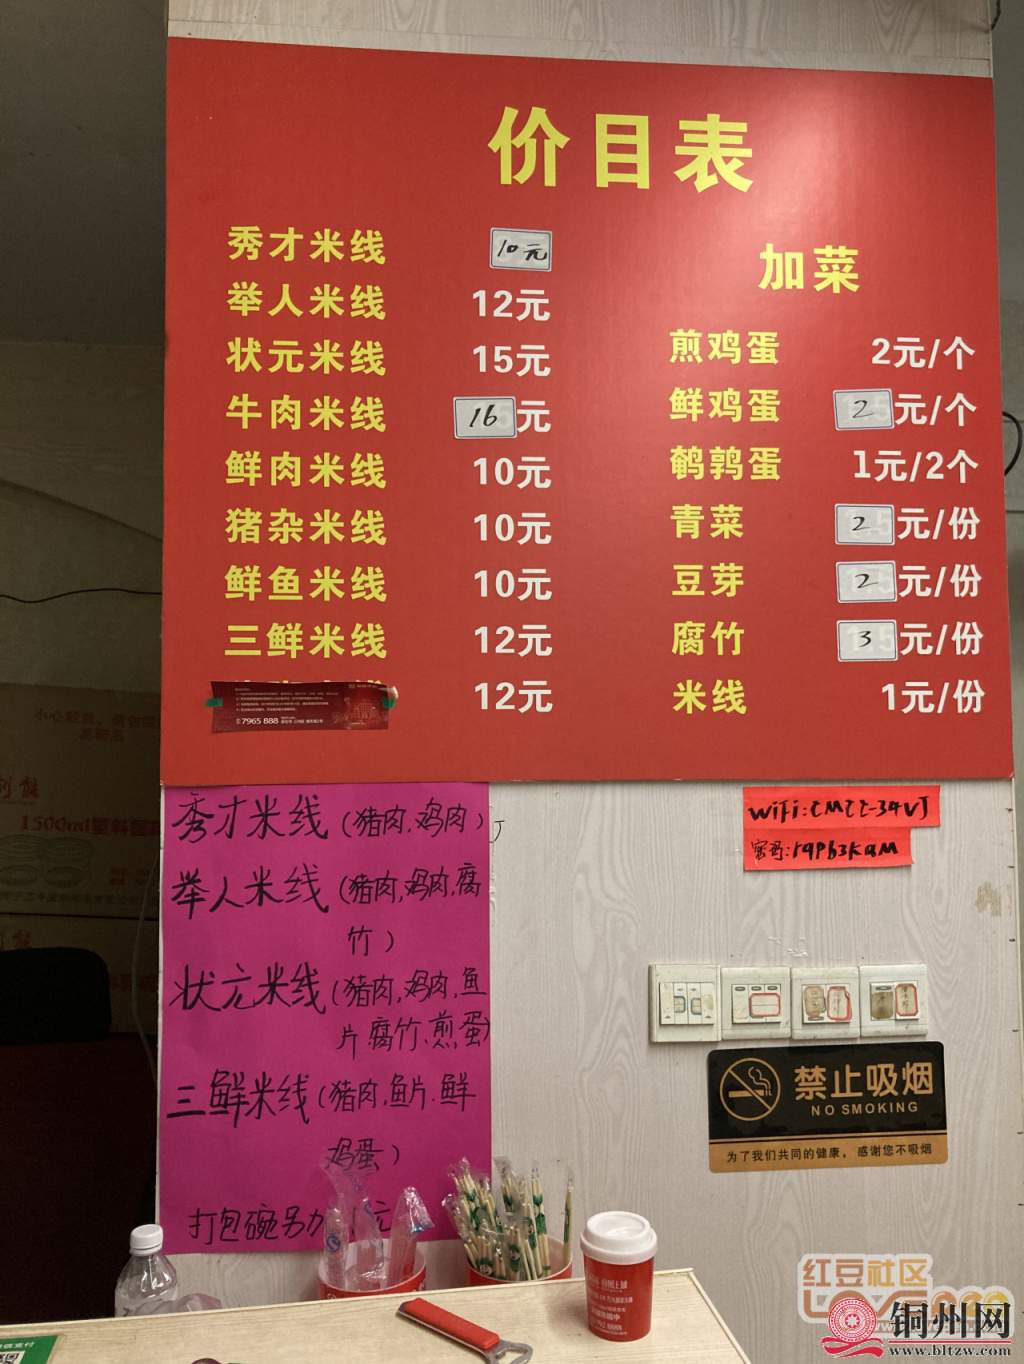 价目表
秀才米线 10元
举人米线 12元
状元米线 15元
牛肉米线 16元
鲜肉米线 10元
猪杂米线 10元
鲜鱼米线 10元
三鲜米线 12元
12元
7965 888
加菜
煎鸡蛋 2元/个
鲜鸡蛋 2元/个
鹌鹑蛋 1元/2个
青菜 2元/份
豆芽 2元/份
腐竹 3元/份
米线 1元/份
秀才米线(猪肉,鸡肉)
举人米线(猪肉,鸡肉,腐
竹)
状元米线(猪肉,鸡肉,鱼
片腐竹、煎蛋)
三鲜米线(猪肉,鱼片.鲜
鸡蛋)
打包碗另加 元
WiFi:CMCC-34VJ
密码:r9pb3kam
禁止吸烟
NO SMOKING
为了我们共同的健康，感谢您不吸烟
1500ml
红豆社区
铜州网
www.bltzw.com